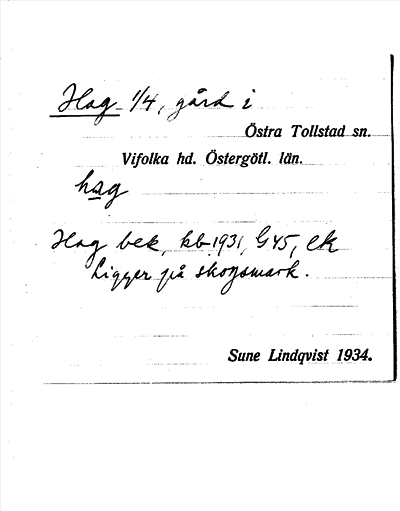 Hag 1/4, gård i
Östra Tollstad sn.
Vifolka hd. Östergötl. län.
hag
Hag bek, kb 1931, G45, ek
Ligger på skogsmark.
Sune Lindqvist 1934.